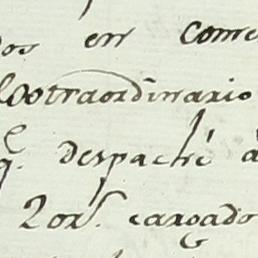 dos en come
Extraordinario
q.e despaché a
2or. cargado